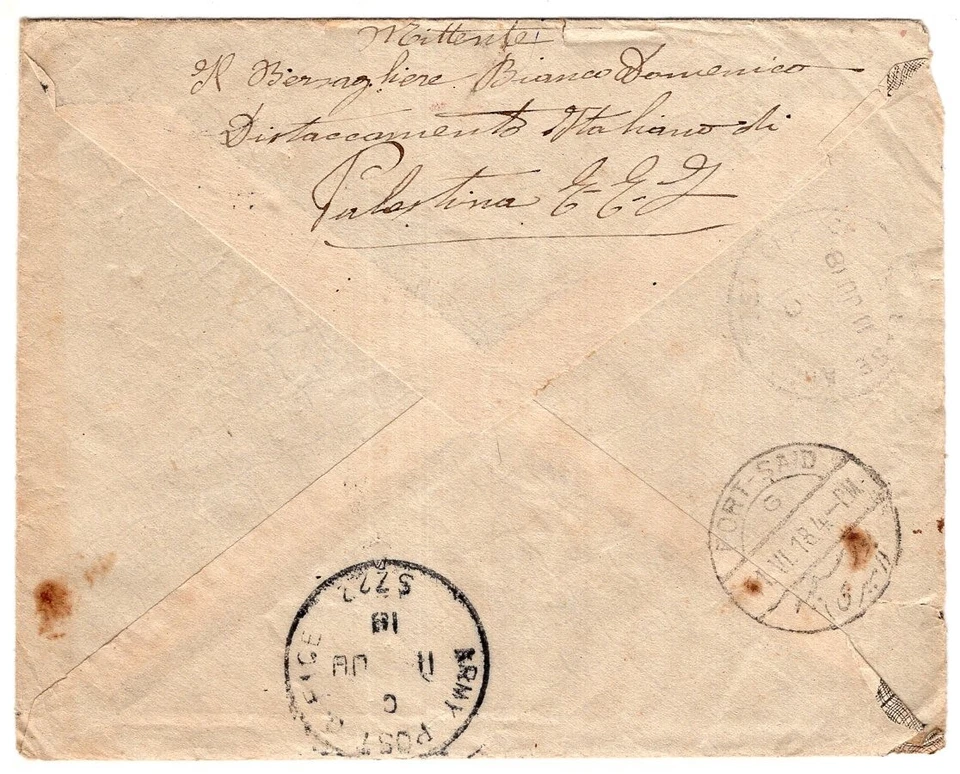 Mittente
Il Bersagliere Bianco Domenico
Distaccamento Italiano di
Palestina E E F
PORT-SAID
G
VI.18.4-PM.
ARMY POST OFFICE
SZ22
18
11 JU
C
11 JU 18
C